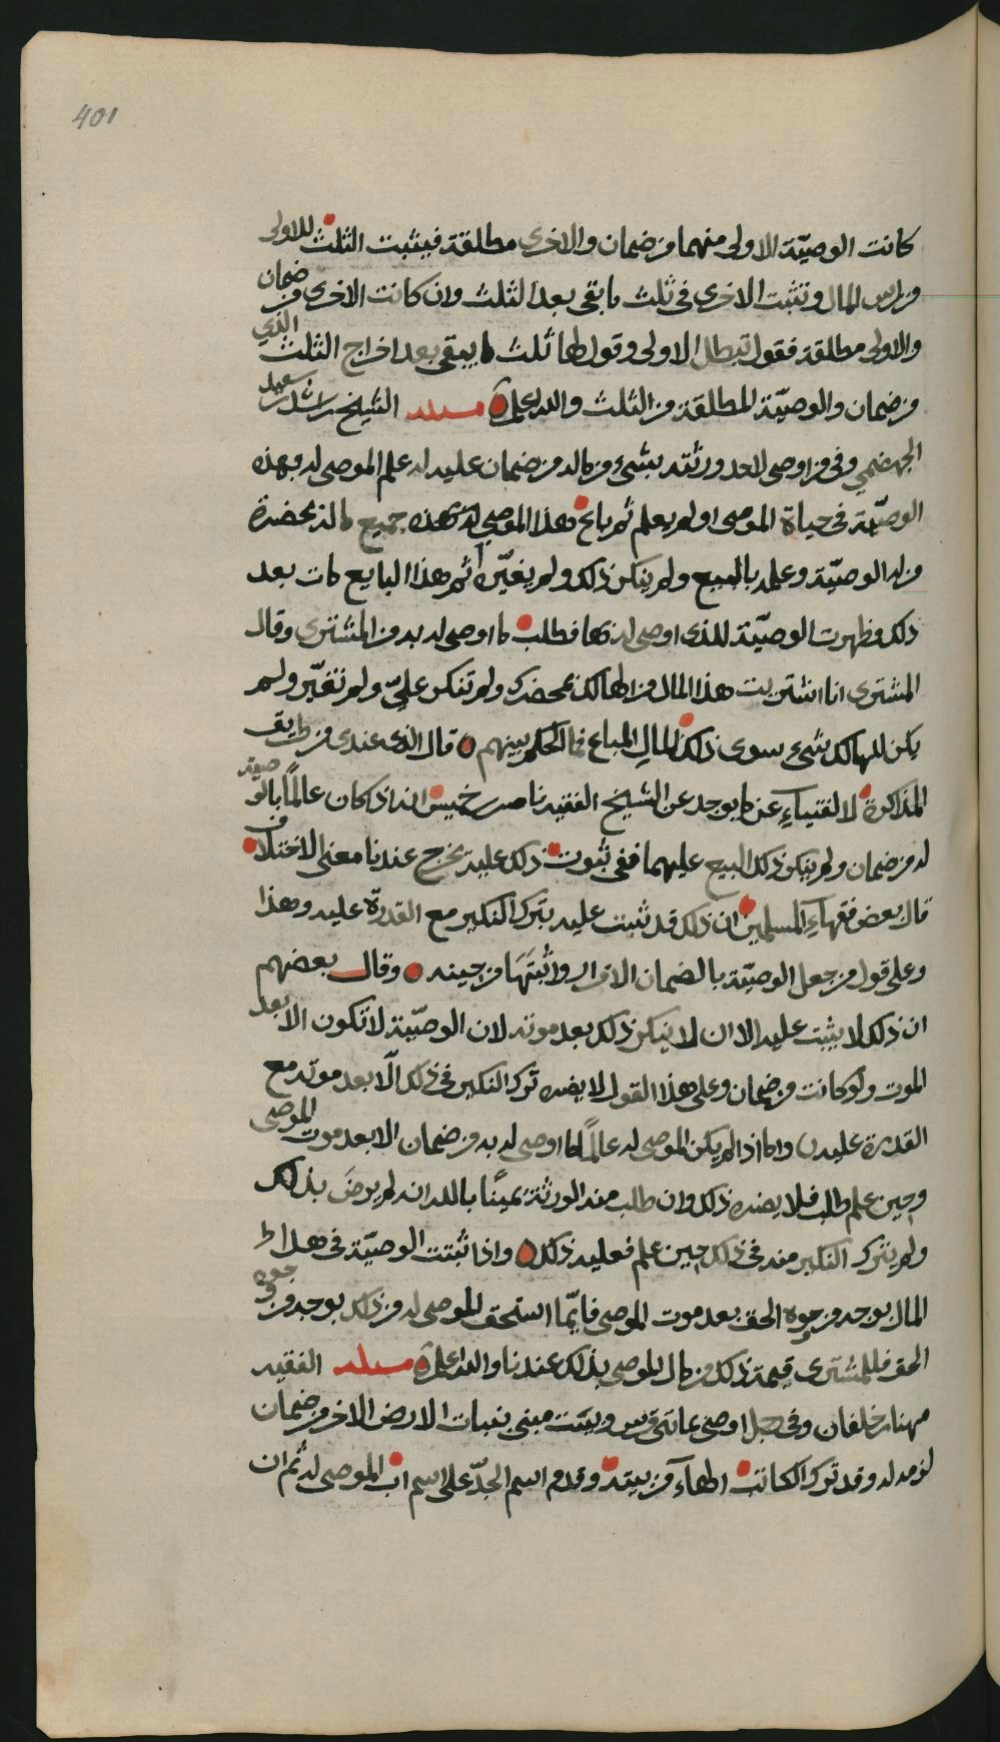 401
كانت الوصيّة الاولى منهما من ضمان والاخرى مطلقة فيثبت الثلث للاولى
من راس المال وتثبت الاخرى في ثلث ما بقى بعد الثلث وان كانت الاخرى من ضمان
والاولى مطلقة فقول تبطل الاولى وقول لها ثلث ما يبقى بعد اخراج الثلث الذي
من ضمان والوصيّة المطلقة من الثلث والله اعلم مسئلة الشيخ راشد بن سعيد
الجهضمي وفي من اوصى لاحد ورثته بشيء من ماله من ضمان عليه له علم الموصى له بهذه
الوصيّة في حياة الموصى او لم يعلم ثم باع هذا الموصي لهذه جميع ماله بحضرة
من له الوصيّة وعلمه بالبيع ولم ينكر ذلك ولم يغيّره ثم هذا البايع مات بعد
ذلك وظهرت الوصيّة للذي اوصى له بها فطلب ما اوصى له به من المشترى وقال
المشترى انا اشتريت هذا المال من الهالك بمحضرك ولم تنكر عليّ ولم تغيّر ولم
يكن للهالك شيء سوى ذلك المال المباع فما الحكم بينهم قال الذي عندي من طريق
المذاكرة لا الفتياء عن ما يوجد عن الشيخ الفقيه ناصر بن خميس انه اذا كان عالمًا بالوصية
له من ضمان ولم ينكر ذلك البيع عليهما ففي ثبوت ذلك عليه يخرج عندنا معنى الاختلاف
قال بعض فقهاء المسلمين ان ذلك قد ثبت عليه بترك النكير مع القدرة عليه وهذا
وعلى قول من جعل الوصيّة بالضمان الاقرار واثبتها من حينه وقال بعضهم
ان ذلك لا يثبت عليه الا ان لا ينكر ذلك بعد موته لان الوصيّة لا تكون الا بعد
الموت ولو كانت من ضمان وعلى هذا القول لا يضره ترك النكير في ذلك الّا بعد موته مع
القدرة عليه واما اذا لم يكن الموصى له عالمًا بما اوصى له به من ضمان الا بعد موت الموصى
وحين علم طلب فلا يضره ذلك وان طلب منه الورثة يمينًا بالله انه لم يرضَ بذلك
ولم يترك النكير منه في ذلك حين علم فعليه ذلك واذا ثبتت الوصيّة في هذا
المال بوجه من وجوه الحق بعد موت الموصى فايّما استحق الموصى له من ذلك بوجه من وجوه
الحق فللمشترى قيمة ذلك من مال الموصى بذلك عندنا والله اعلم مسئلة الفقيه
مهنا بن خلفان وفي رجل اوصى بمائتى قرش وبيت مبني بنبات الارض لاخر من ضمان
لزمه له وقد ترك الكاتب الهاء من بيته وقدم اسم الجدّ على اسم اب الموصى له ثم ان